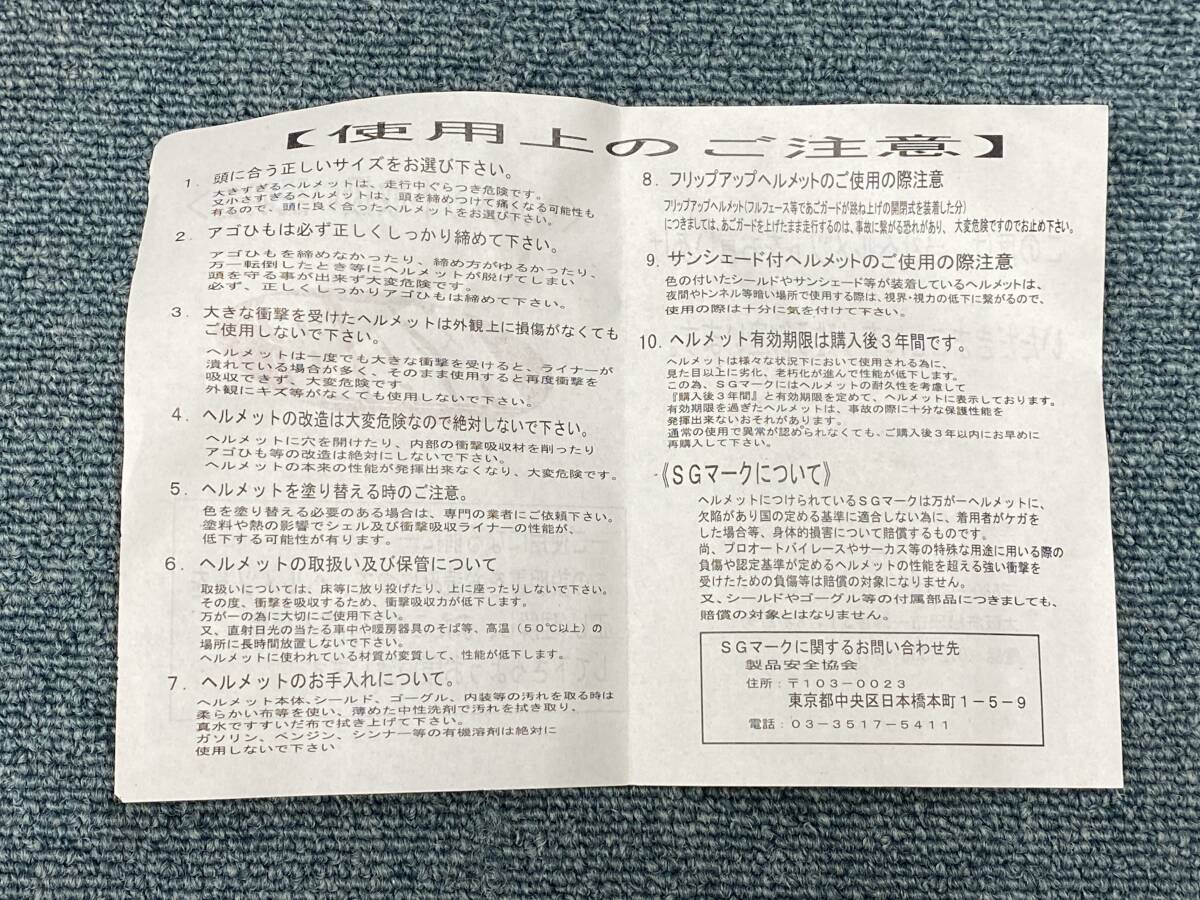 【使用上のご注意】
1. 頭に合う正しいサイズをお選び下さい。
大きすぎるヘルメットは、走行中ぐらつき危険です。
又小さすぎるヘルメットは、頭を締めつけて痛くなる可能性も
有るので、頭に良く合ったヘルメットをお選び下さい。
2. アゴひもは必ず正しくしっかり締めて下さい。
アゴひもを締めなかったり、締め方がゆるかったり、
万一転倒したとき等にヘルメットが脱げてしまい
頭を守る事が出来ず大変危険です。
必ず、正しくしっかりアゴひもは締めて下さい。
3. 大きな衝撃を受けたヘルメットは外観上に損傷がなくても
ご使用しないで下さい。
ヘルメットは一度でも大きな衝撃を受けると、ライナーが
潰れている場合が多く、そのまま使用すると再度衝撃を
吸収できず、大変危険です
外観にキズ等がなくても使用しないで下さい。
4. ヘルメットの改造は大変危険なので絶対しないで下さい。
ヘルメットに穴を開けたり、内部の衝撃吸収材を削ったり
アゴひも等の改造は絶対にしないで下さい。
ヘルメットの本来の性能が発揮出来なくなり、大変危険です。
5. ヘルメットを塗り替える時のご注意。
色を塗り替える必要のある場合は、専門の業者にご依頼下さい。
塗料や熱の影響でシェル及び衝撃吸収ライナーの性能が、
低下する可能性が有ります。
6. ヘルメットの取扱い及び保管について
取扱いについては、床等に放り投げたり、上に座ったりしないで下さい。
その度、衝撃を吸収するため、衝撃吸収力が低下します。
万が一の為に大切にご使用下さい。
又、直射日光の当たる車中や暖房器具のそば等、高温(50℃以上)の
場所に長時間放置しないで下さい。
ヘルメットに使われている材質が変質して、性能が低下します。
7. ヘルメットのお手入れについて。
ヘルメット本体、シールド、ゴーグル、内装等の汚れを取る時は
柔らかい布等を使い、薄めた中性洗剤で汚れを拭き取り、
真水ですすいだ布で拭き上げて下さい。
ガソリン、ベンジン、シンナー等の有機溶剤は絶対に
使用しないで下さい
8. フリップアップヘルメットのご使用の際注意
フリップアップヘルメット(フルフェース等であごガードが跳ね上げの開閉式を装着した分)
につきましては、あごガードを上げたまま走行するのは、事故に繋がる恐れがあり、大変危険ですのでお止め下さい。
9. サンシェード付ヘルメットのご使用の際注意
色の付いたシールドやサンシェード等が装着しているヘルメットは、
夜間やトンネル等暗い場所で使用する際は、視界・視力の低下に繋がるので、
使用の際は十分に気を付けて下さい。
10. ヘルメット有効期限は購入後3年間です。
ヘルメットは様々な状況下において使用される為に、
見た目以上に劣化、老朽化が進んで性能が低下します。
この為、SGマークにはヘルメットの耐久性を考慮して
『購入後3年間』と有効期限を定めて、ヘルメットに表示しております。
有効期限を過ぎたヘルメットは、事故の際に十分な保護性能を
発揮出来ないおそれがあります。
通常の使用で異常が認められなくても、ご購入後3年以内にお早めに
再購入して下さい。
《SGマークについて》
ヘルメットにつけられているSGマークは万が一ヘルメットに、
欠陥があり国の定める基準に適合しない為に、着用者がケガを
した場合等、身体的損害について賠償するものです。
尚、プロオートバイレースやサーカス等の特殊な用途に用いる際の
負傷や認定基準が定めるヘルメットの性能を超える強い衝撃を
受けたための負傷等は賠償の対象になりません。
又、シールドやゴーグル等の付属部品につきましても、
賠償の対象とはなりません。
SGマークに関するお問い合わせ先
製品安全協会
住所:〒103-0023
東京都中央区日本橋本町1-5-9
電話:03-3517-5411